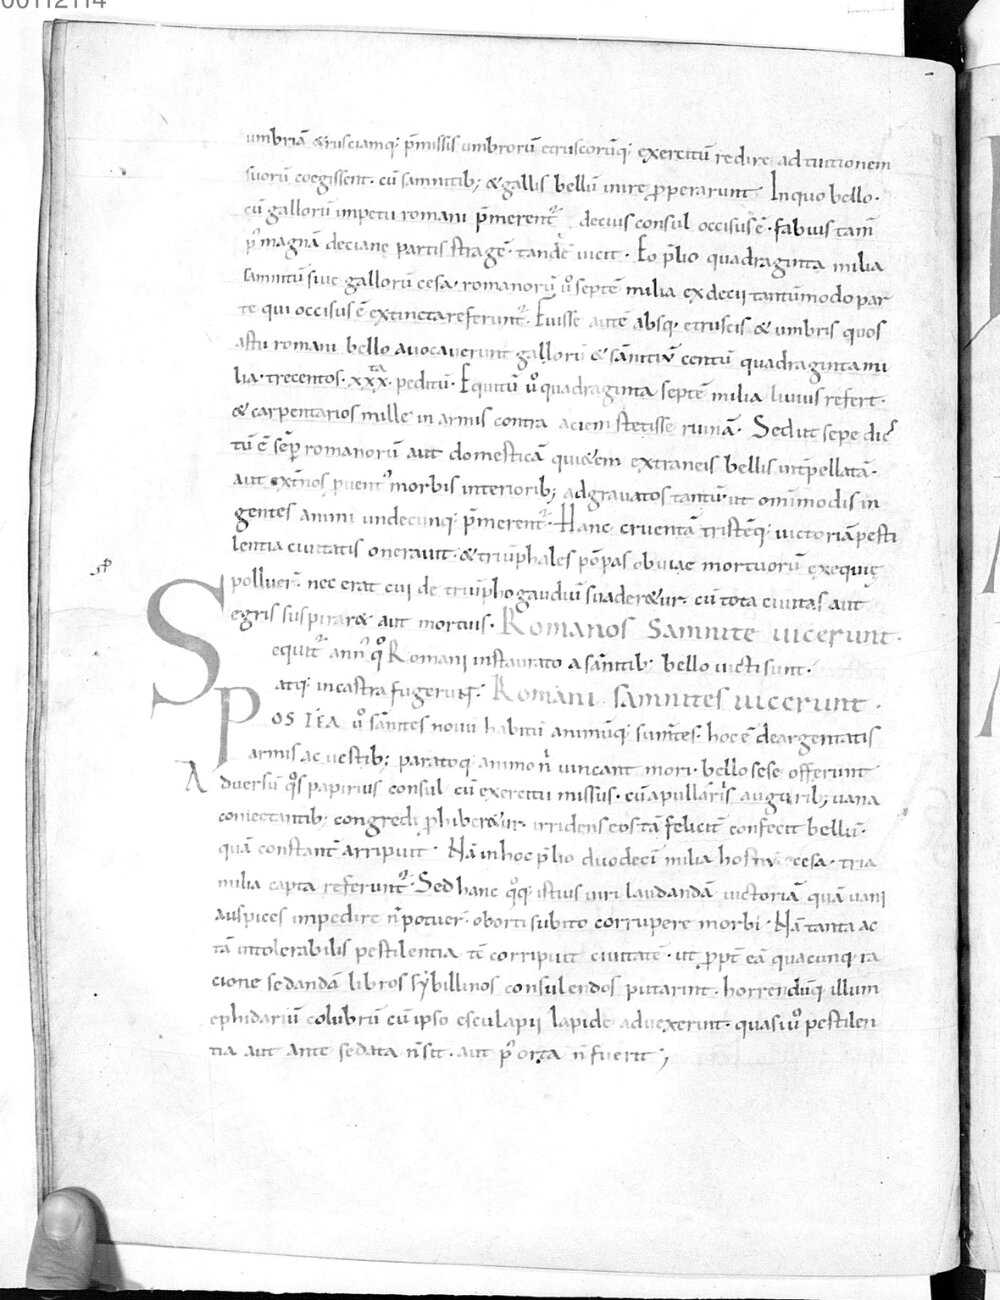 00112114
umbriā &rusciamq; p̄missis umbrorū etruscorūq; exercitū redire ad tuitionem
suorū coegissent· cū samnitib; & gallis bellū inire p̱perarunt· In quo bello·
cū gallorū impetu romani p̄merent᷑ decius consul occisus ē· fabius tam̄
p᷒ magnā decianę partis stragē· tandē vicit· Eo p̄lio quadraginta milia
samnitū sive gallorū cesa· romanorū ū septē milia ex decii tantūmodo par
te qui occisus ē extincta referunt᷑· Fuisse autē absq; etruscis & umbris quos
astu romani bello avocaverunt gallorū & sānitiū centū quadraginta mi
lia· trecentos· xxx ta· peditū· Equitū ū quadraginta septē milia livius refert·
& carpentarios mille in armis contra aciem stetisse ruinā· Sed ut sepe dic
tū ē sēp romanorū aut domesticā qui&em extraneis bellis int̄pellatā·
aut ext̄nos p̱vent᷒ morbis interiorib; adgravatos tantū· ut omīmodis in
gentes animi undecunq; p̄merent᷑· Hanc cruentā tristēq; victoriā pesti
lentia civitatis oneravit· & triūphales pōpas obviae mortuorū exequię
polluer̄· nec erat cui de triūpho gaudiū suader&ur· cū tota civitas aut
egris suspirar& aut mortuis· Romanos Samnite vicerunt·
Sequit᷑ ann᷒ q° Romani instaurato a sānitib; bello victi sunt·
atq; in castra fugerunt· Romani samnites vicerunt·
Postea ū sānites novū habitū animūq; sum̄tes· hoc ē deargentatis
armis ac vestib; paratoq; animo n̄ vincant mori· bello sese offerunt
Adversū q°s papirius consul cū exercitu missus· cū a pullariis augurib; vana
coniectantib; congredi p̱hiber&ur· irridens eos tā felicit̄ confecit bellū·
quā constant̄ arripuit· Nā in hoc p̄lio duodeci milia hostiū cesa· tria
milia capta referunt᷑· Sed hanc q°q; istius viri laudandā victoriā quā vani
auspices impedire n̄ potuer̄· oborti subito corrupere morbi· Nā tanta ac
tā intolerabilis pestilentia tē corripuit civitatē· ut p̱pt̄ eā quacunq; ra
cione sedandā libros sybillinos consulendos putarint· horrendūq; illum
ephidariū colubrū cū ipso esculapii lapide advexerint· quasi ū pestilen
tia aut ante sedata n̄ sit· aut p᷒ orta n̄ fuerit;